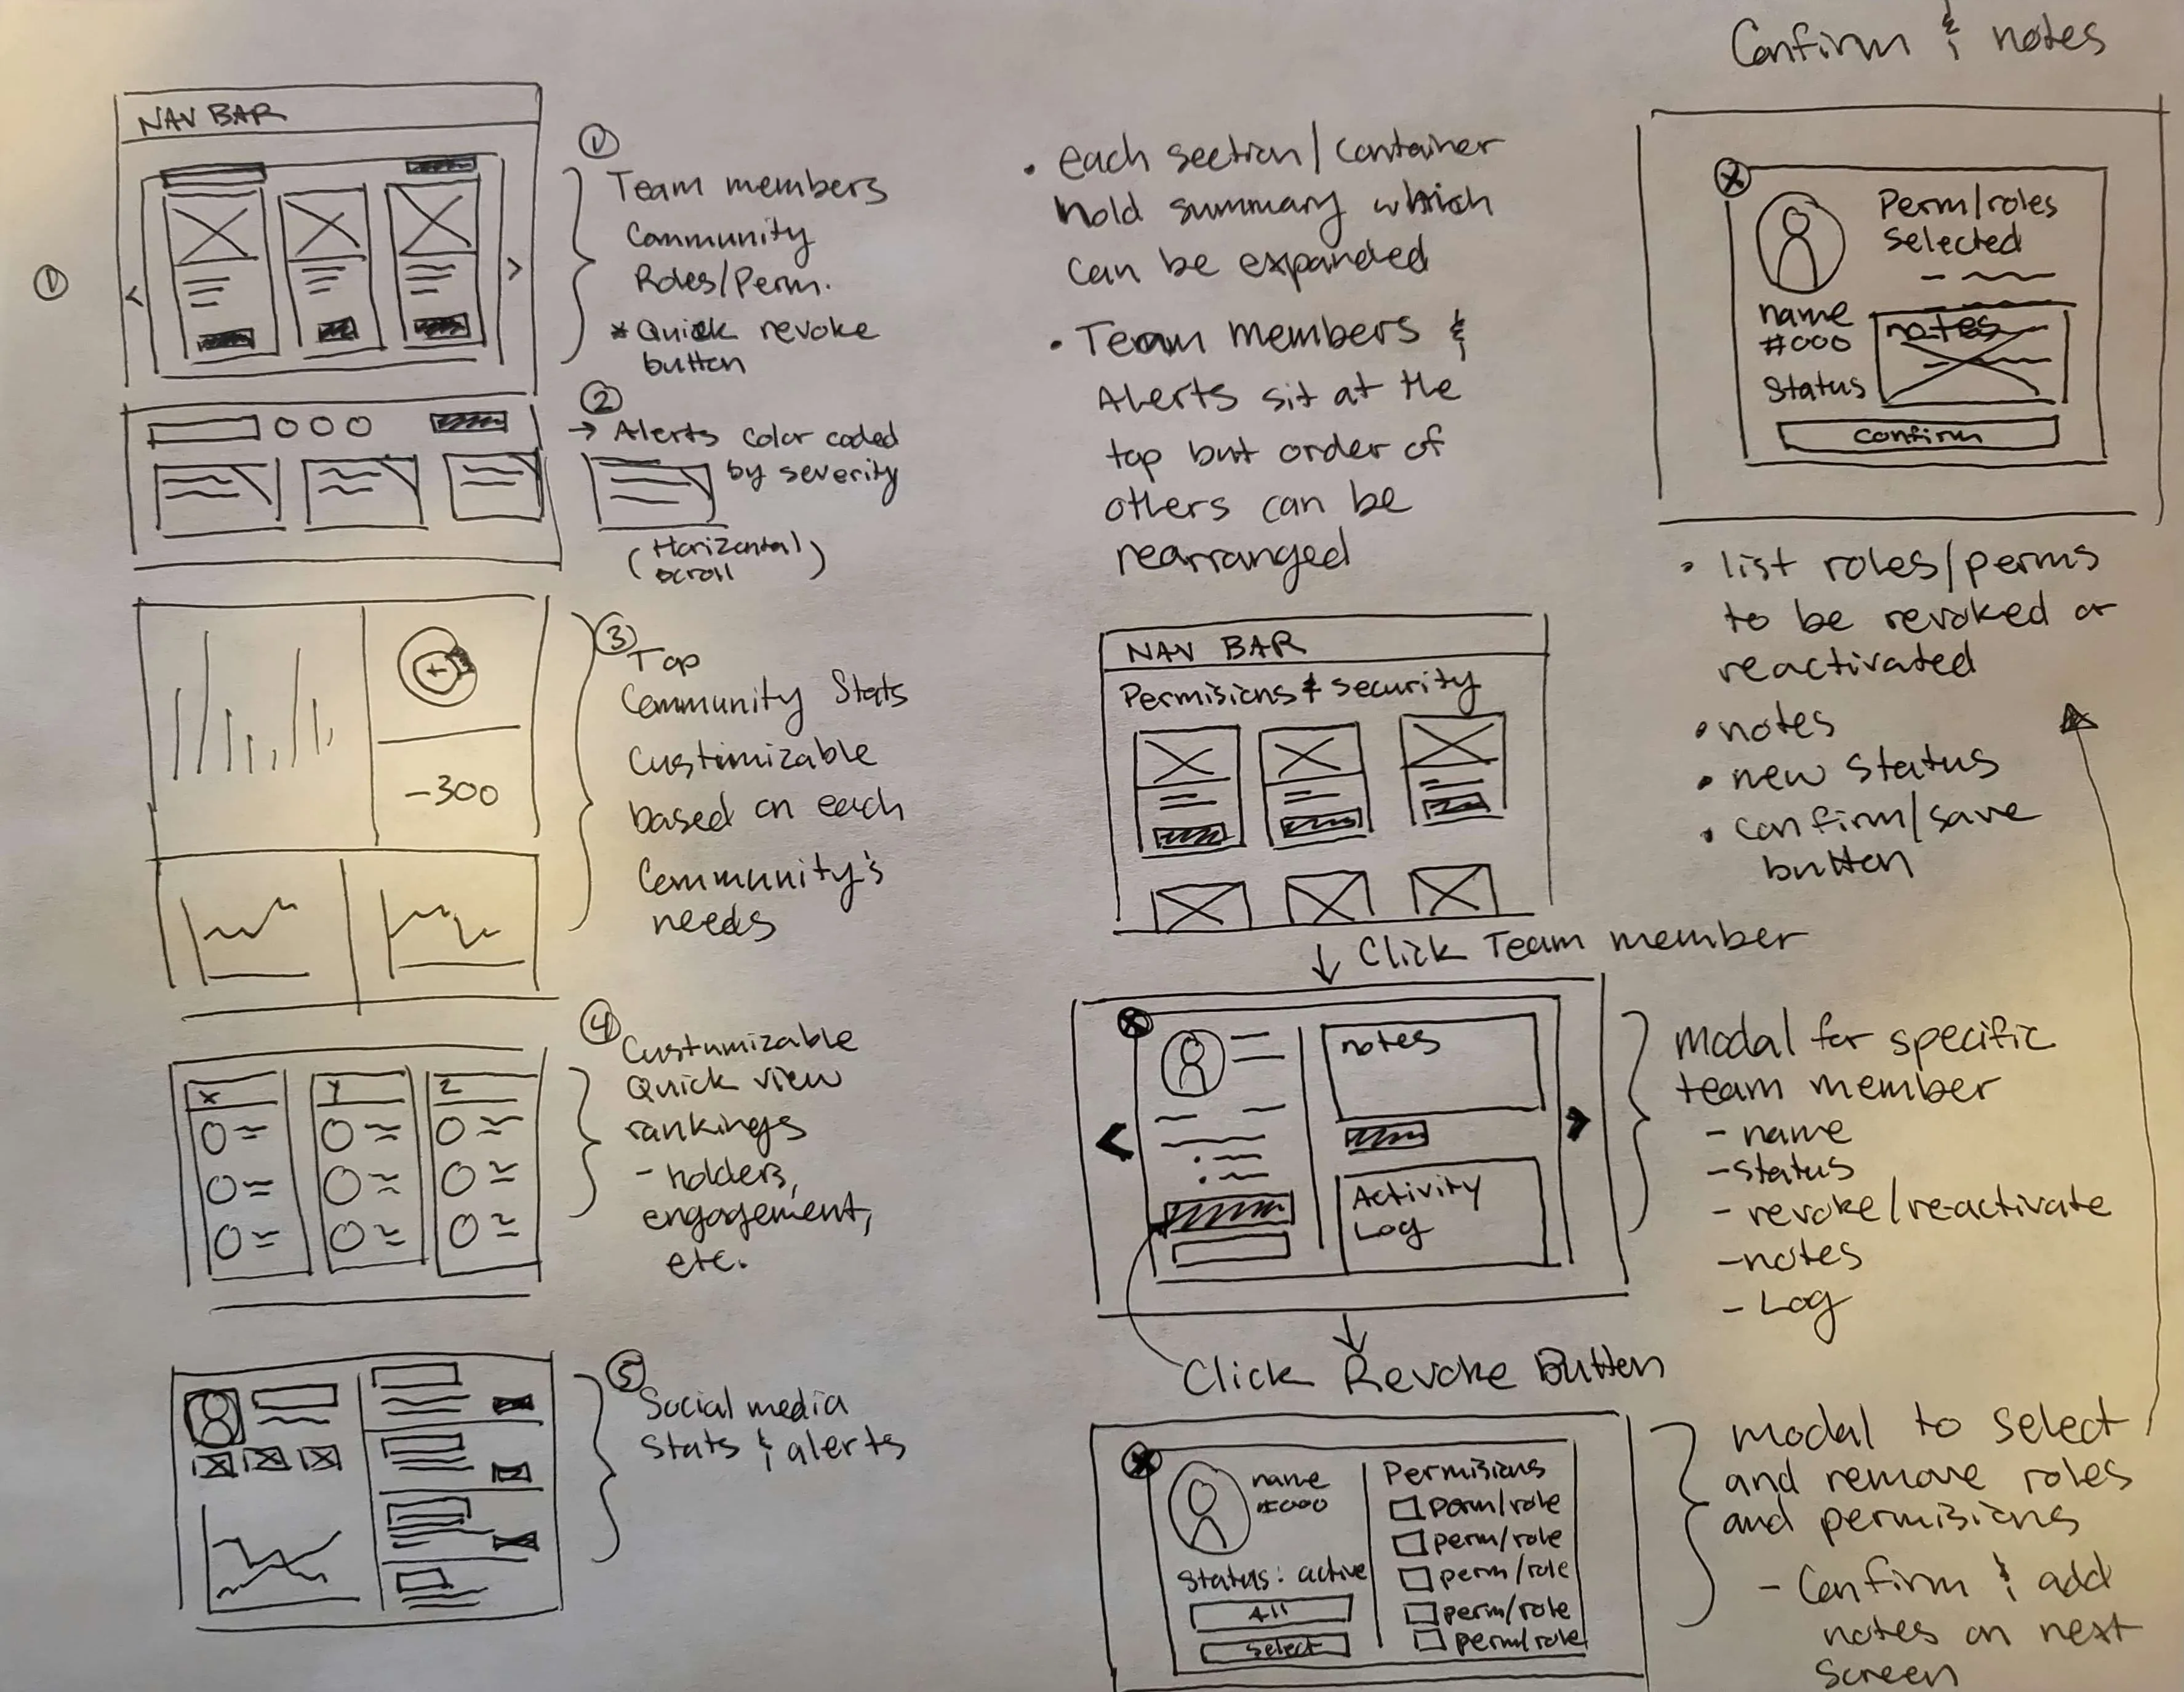 ①
NAV BAR
<
>
①
Team members
Community
Roles/Perm.
* Quick revoke
button
②
→ Alerts color coded
by severity
(Horizontal
scroll)
-300
③
Top
Community Stats
Custimizable
based on each
Community's
needs
X
Y
Z
④
Custumizable
Quick view
rankings
- holders,
engagement,
etc.
⑤
Social media
Stats & alerts
• each section/container
hold summary which
can be expanded
• Team members &
Alerts sit at the
top but order of
others can be
rearranged
NAV BAR
Permisions & security
↓ Click Team member
<
>
notes
Activity
Log
Modal for specific
team member
- name
- status
- revoke/re-activate
- notes
- Log
Click Revoke Button
name
#000
Status: active
All
Select
Permisians
perm/role
perm/role
perm/role
perm/role
perm/role
modal to select
and remove roles
and permisians
- Confirm & add
notes on next
screen
Confirm & notes
Perm/roles
selected
name
#000
Status
notes
Confirm
• list roles/perms
to be revoked or
reactivated
• notes
• new status
• confirm/save
button